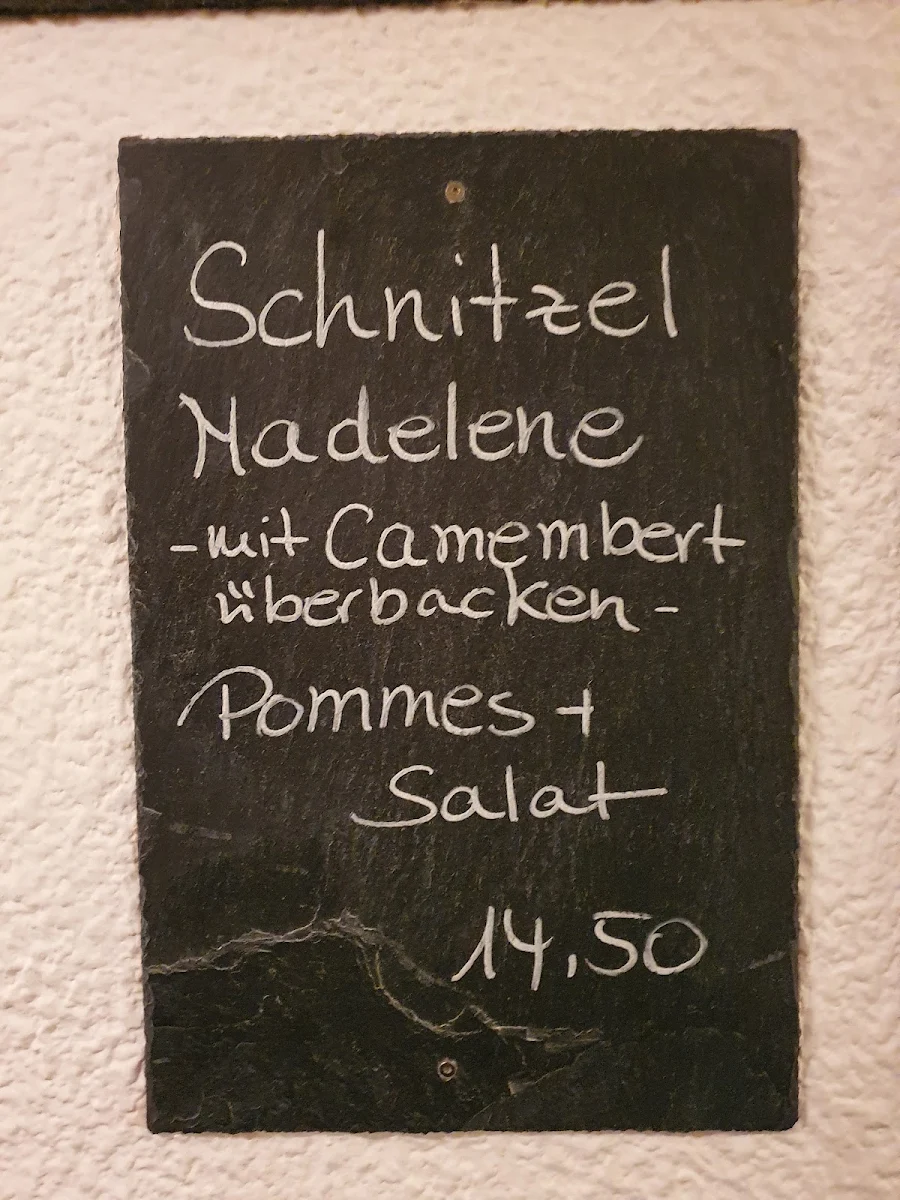 Schnitzel
Madelene
-mit Camembert
überbacken-
Pommes +
Salat
14,50